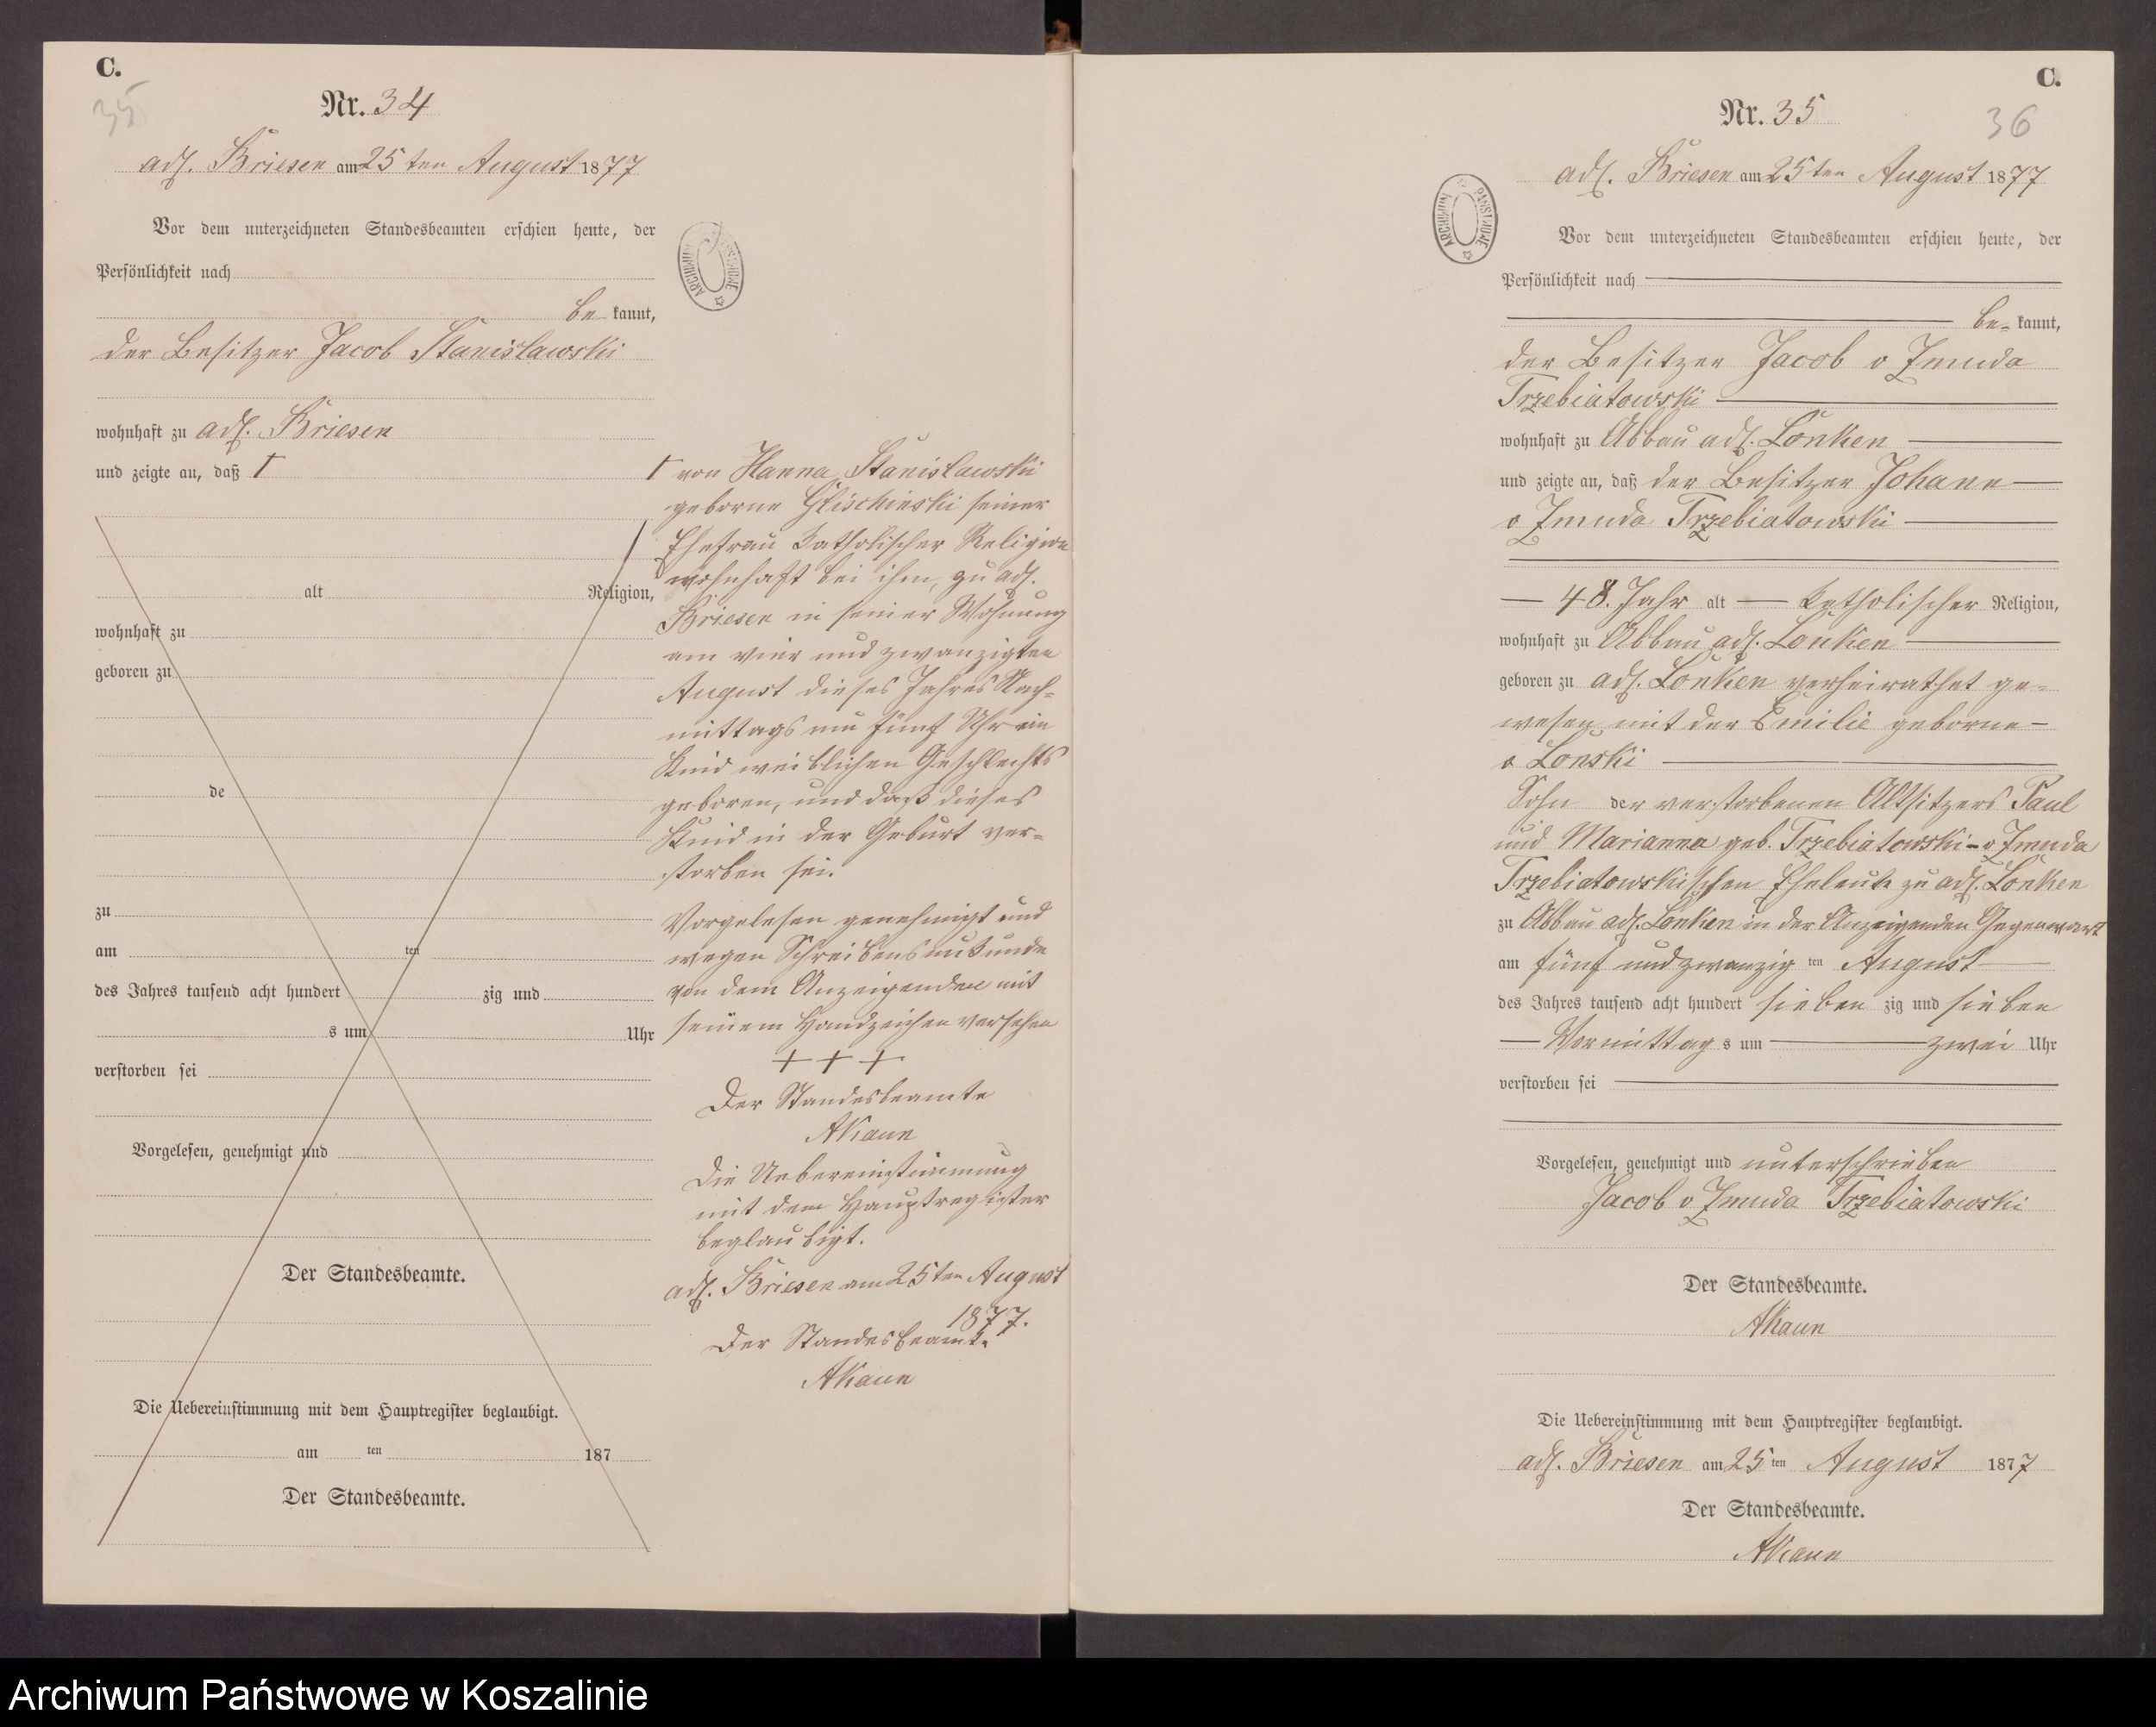 C.
35
Nr. 34
adl. Briesen am 25 ten August 1877
Vor dem unterzeichneten Standesbeamten erschien heute, der
Persönlichkeit nach
be kannt,
der Besitzer Jacob Stanislawski
wohnhaft zu adl. Briesen
und zeigte an, daß †
alt Religion,
wohnhaft zu
geboren zu
de
zu
am ten
des Jahres tausend acht hundert zig und
s um Uhr
verstorben sei
Vorgelesen, genehmigt und
Der Standesbeamte.
Die Uebereinstimmung mit dem Hauptregister beglaubigt.
am ten 187
Der Standesbeamte.
† von Hanna Stanislawski
geborne Glischinski seiner
Ehefrau katholischer Religion
wohnhaft bei ihm, zu adl.
Briesen in seiner Wohnung
am vier und zwanzigten
August dieses Jahres Nach-
mittags um fünf Uhr ein
Kind weiblichen Geschlechts
geboren, und daß dieses
Kind in der Geburt ver-
storben sei.
Vorgelesen genehmigt und
wegen Schreibensunkunde
von dem Anzeigenden mit
seinem Handzeichen versehen
+ + +
Der Standesbeamte
AKaun
Die Uebereinstimmung
mit dem Hauptregister
beglaubigt.
adl. Briesen am 25ten August
1877.
Der Standesbeamte.
AKaun
ARCHIWUM PAŃSTWOWE
C.
36
Nr. 35
adl. Briesen am 25 ten August 1877
Vor dem unterzeichneten Standesbeamten erschien heute, der
Persönlichkeit nach
be- kannt,
der Besitzer Jacob v Zmuda
Trzebiatowski
wohnhaft zu Abbau adl. Lonken
und zeigte an, daß der Besitzer Johann
v Zmuda Trzebiatowski
48. Jahr alt katholischer Religion,
wohnhaft zu Abbau adl. Lonken
geboren zu adl. Lonken verheirathet ge-
wesen mit der Emilie geborne
v Lonski
Sohn der verstorbenen Altsitzers Paul
und Marianna geb. Trzebiatowski - v Zmuda
Trzebiatowskischen Eheleute zu adl. Lonken
zu Abbau adl. Lonken in der Anzeigenden Gegenwart
am fünf und zwanzig ten August
des Jahres tausend acht hundert sieben zig und sieben
Vormittag s um zwei Uhr
verstorben sei
Vorgelesen, genehmigt und unterschrieben
Jacob v Zmuda Trzebiatowski
Der Standesbeamte.
AKaun
Die Uebereinstimmung mit dem Hauptregister beglaubigt.
adl. Briesen am 25 ten August 1877
Der Standesbeamte.
AKaun
ARCHIWUM PAŃSTWOWE
Archiwum Państwowe w Koszalinie